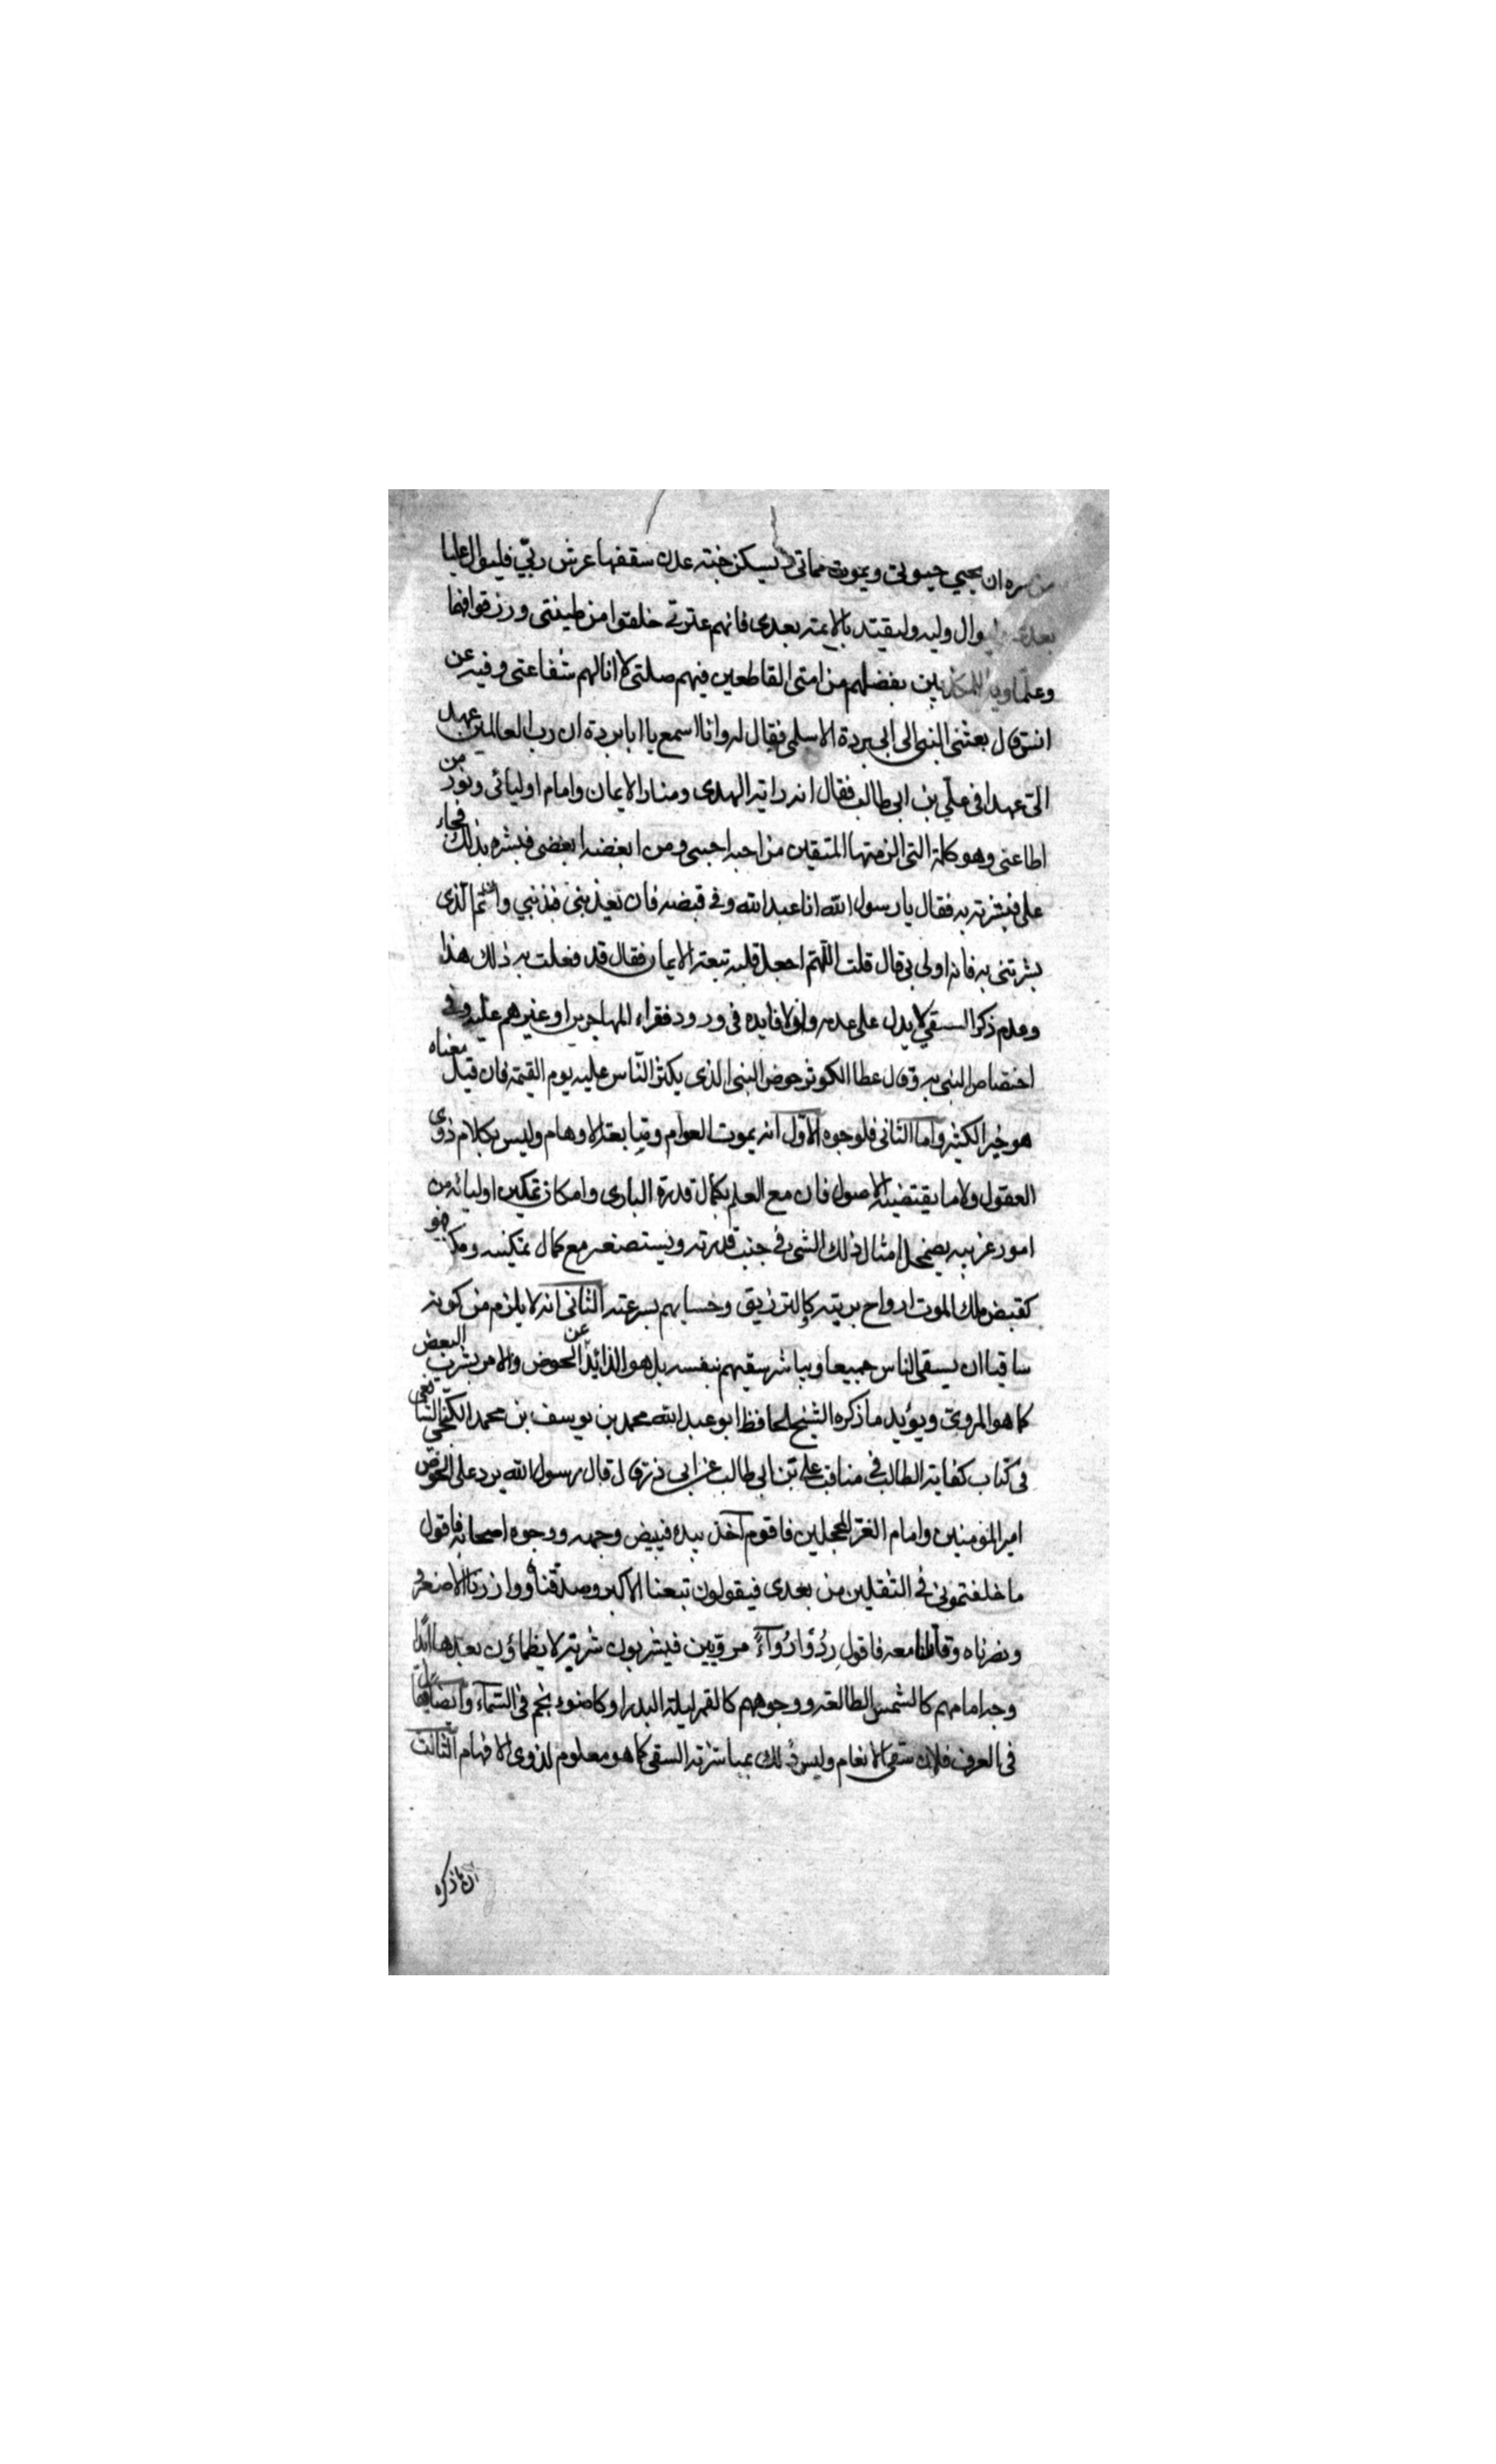 من سره ان يحيي حيوتي ويموت مماتي ويسكن جنة عدن سقفها عرش ربّي فليوال عليا
بعدي وليوال وليه وليقتد بالائمة بعدي فانهم عترتي خلقوا من طينتي ورزقوا فهما
وعلما ويل للمكذبين بفضلهم من امتي القاطعين فيهم صلتي لا انالهم شفاعتي وفيه عن
انس قال بعثني النبي الى ابي بردة الاسلمي فقال له وانا اسمع يا ابا بردة ان رب العالمين عهد
الىّ عهدا في علي بن ابي طالب فقال انه راية الهدى ومنار الايمان وامام اوليائي ونور من
اطاعني وهو كلمة التي الزمتها المتقين من احبه احبني ومن ابغضه ابغضني فبشره بذلك فجاء
علي فبشرته به فقال يا رسول الله انا عبد الله وفي قبضته فان يعذبني فذنبي وان تم الذي
بشرتني به فانه اولى بي قال قلت اللّهم اجعل قلبه تبعة الايمان فقال قد فعلت به ذلك هذا
وعدم ذكر السقي لا يدل على عدمه ولا فايده في ورود فقراء المهاجرين او غيرهم عليه وفي
اختصاص النبي به وقال عطا الكوثر حوض النبي الذي يكثر النّاس عليه يوم القيمة فان قيل معناه
هو خير الكثير واما الثاني فلوجوه الاوّل انه يموت العوام ومتابعة الاوهام وليس بكلام ذوى
العقول ولا ما يقتضيه الاصول فان مع العلم بكمال قدرة البارى وامكان تمكين اوليائه من
امور غريبه يضمحل امثال ذلك الشئ في جنب قدرته ويستصغر مع كمال تمكينه فهو
كقبض ملك الموت ارواح بريته كالترزيق وحسابهم بسرعته الثاني انه لا يلزم من كونه
ساقيا ان يسقي الناس جميعا ويباشر سقيهم بنفسه بل هو الذائد عن الحوض والامر بشرب البعض
كما هو المروى ويؤيد ما ذكره الشيخ الحافظ ابو عبد الله محمد بن يوسف بن محمد الكنجي الشافعي
في كتاب كفاية الطالب في مناقب علي بن ابي طالب عن ابي ذر قال قال رسول الله يرد على الحوض
امير المؤمنين وامام الغرّ المحجلين فاقوم آخذ بيده فيبيض وجهه ووجوه اصحابه فاقول
ما خلفتموني في الثقلين من بعدى فيقولون تبعنا الاكبر وصدقناه ووازرنا الاصغر و
ونصرناه وقاتلنا معه فاقول رِدُوا رُواءً مرويين فيشربون شربة لا يظماؤن بعدها ابدًا
وجه امامهم كالشمس الطالعة ووجوههم كالقمر ليلة البدر او كاضوء نجم في السّماء وايضا يقال
في العرف فلان سقى الانعام وليس ذلك بمباشرته السقي كما هو معلوم لذوي الافهام الثالث
ان ما ذكره